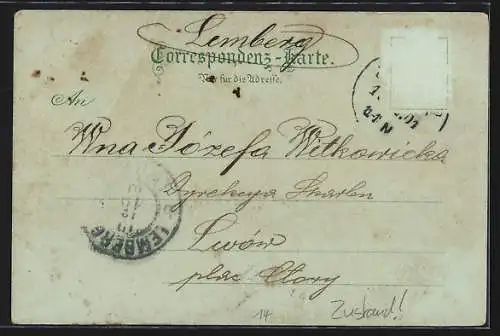 Lemberg
Correspondenz-Karte.
Nur für die Adresse.
An
Wna Józefa Witkowicka
Dyrekcya Skarbu
Lwów
plac Clowy
LEMBERG
14
Zustand!!